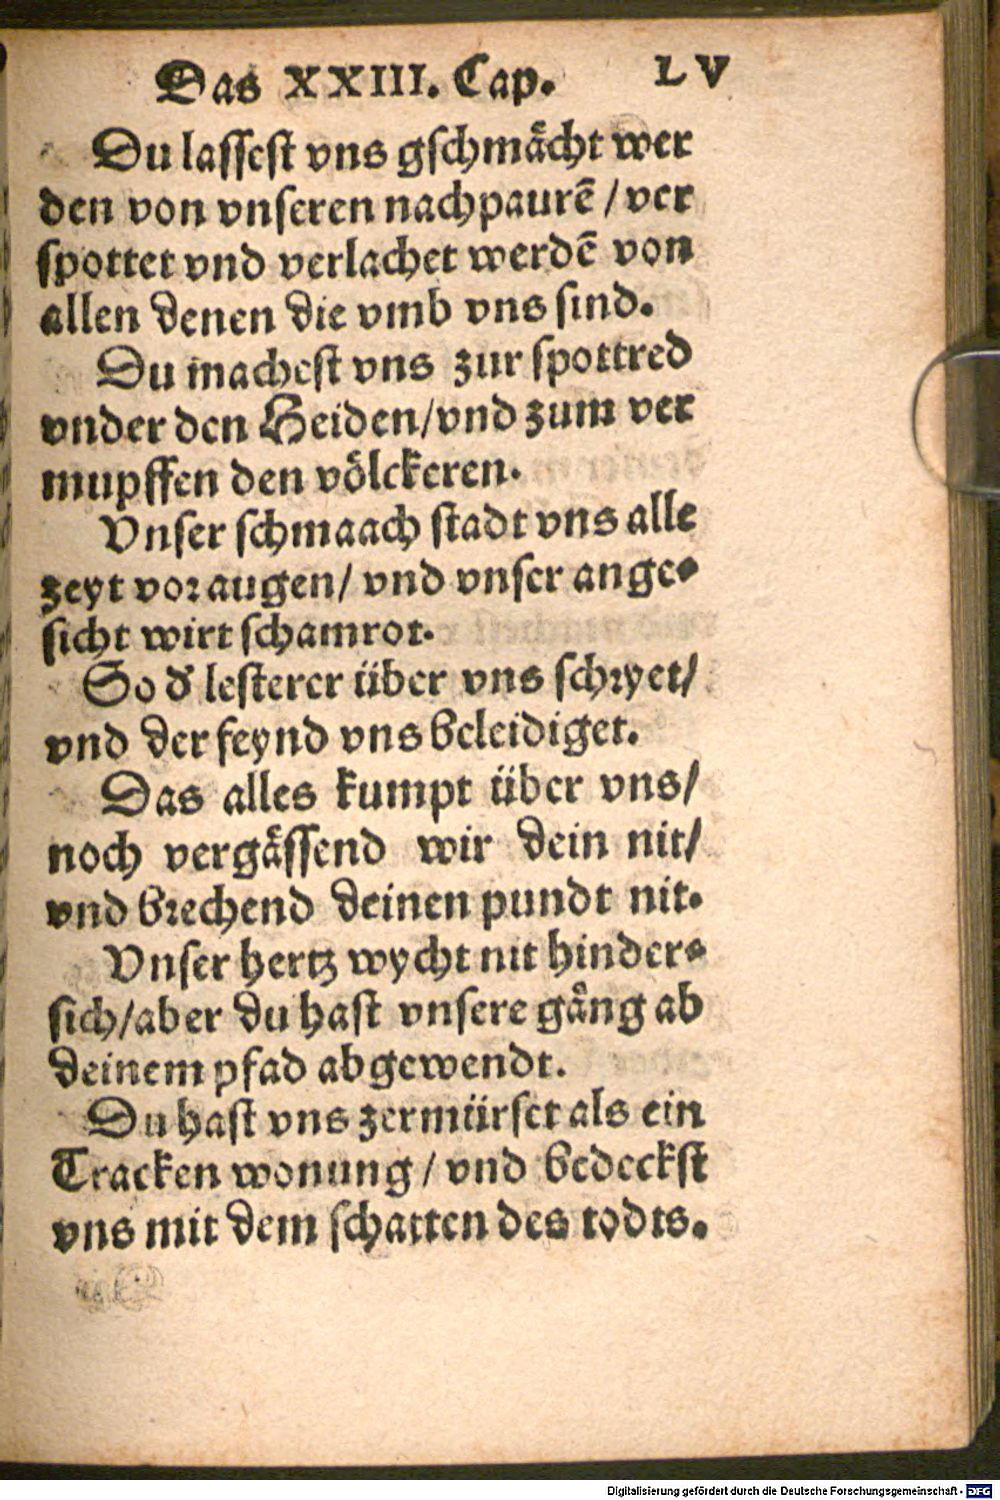 Das XXIII. Cap. LV
Du lassest vns gschmaͤcht wer
den von vnseren nachpaurẽ / ver
spottet vnd verlachet werdẽ von
allen denen die vmb vns sind.
Du machest vns zur spottred
vnder den Heiden/vnd zum ver
mupffen den voͤlckeren.
Vnser schmaach stadt vns alle
zeyt vor augen/ vnd vnser ange⸗
sicht wirt schamrot.
So d' lesterer über vns schryet/
vnd der feynd vns beleidiget.
Das alles kumpt über vns/
noch vergaͤssend wir dein nit/
vnd brechend deinen pundt nit.
Vnser hertz wycht nit hinder⸗
sich/aber du hast vnsere gaͤng ab
deinem pfad abgewendt.
Du hast vns zermürset als ein
Tracken wonung / vnd bedeckst
vns mit dem schatten des todts.
Digitalisierung gefördert durch die Deutsche Forschungsgemeinschaft - DFG